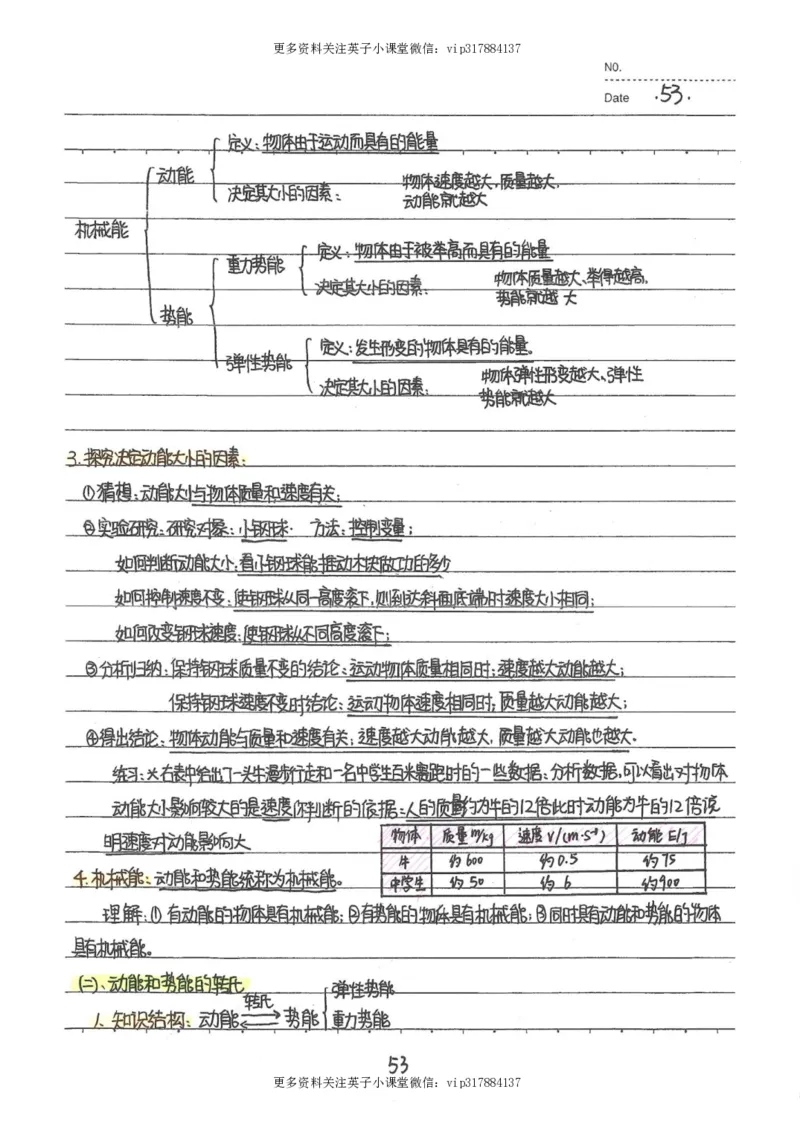 更多资料关注英子小课堂微信：vip317884137
NO.
Date .53.
定义：物体由于运动而具有的能量
动能
决定其大小的因素：物体速度越大，质量越大，
动能就越大
机械能
定义：物体由于被举高而具有的能量
重力势能
决定其大小的因素：物体质量越大、举得越高，
势能就越大
势能
定义：发生形变的物体具有的能量。
弹性势能
决定其大小的因素：物体弹性形变越大、弹性
势能就越大
3.探究决定动能大小的因素：
①猜想：动能大小与物体质量和速度有关；
②实验研究：研究对象：小钢球. 方法：控制变量；
如何判断动能大小：看小钢球能推动木块做功的多少
如何控制速度不变：使钢球从同一高度滚下，则到达斜面底端时速度大小相同；
如何改变钢球速度：使钢球从不同高度滚下；
③分析归纳：保持钢球质量不变的结论：运动物体质量相同时；速度越大动能越大；
保持钢球速度不变时结论：运动物体速度相同时；质量越大动能越大；
④得出结论：物体动能与质量和速度有关；速度越大动能越大，质量越大动能也越大.
练习：※右表中给出了一头牛漫步行走和一名中学生百米赛跑时的一些数据：分析数据，可以看出对物体
动能大小影响较大的是速度你判断的依据：人的质量约为牛的1/12倍此时动能为牛的12倍说
明速度对动能影响大
物体 质量m/kg 速度v/(m·s⁻¹) 动能E/J
牛 约600 约0.5 约75
中学生 约50 约6 约900
4.机械能：动能和势能统称为机械能。
理解：①有动能的物体具有机械能；②有势能的物体具有机械能；③同时具有动能和势能的物体
具有机械能。
(二)、动能和势能的转化
1、知识结构：动能 转化 势能 弹性势能
重力势能
53
更多资料关注英子小课堂微信：vip317884137